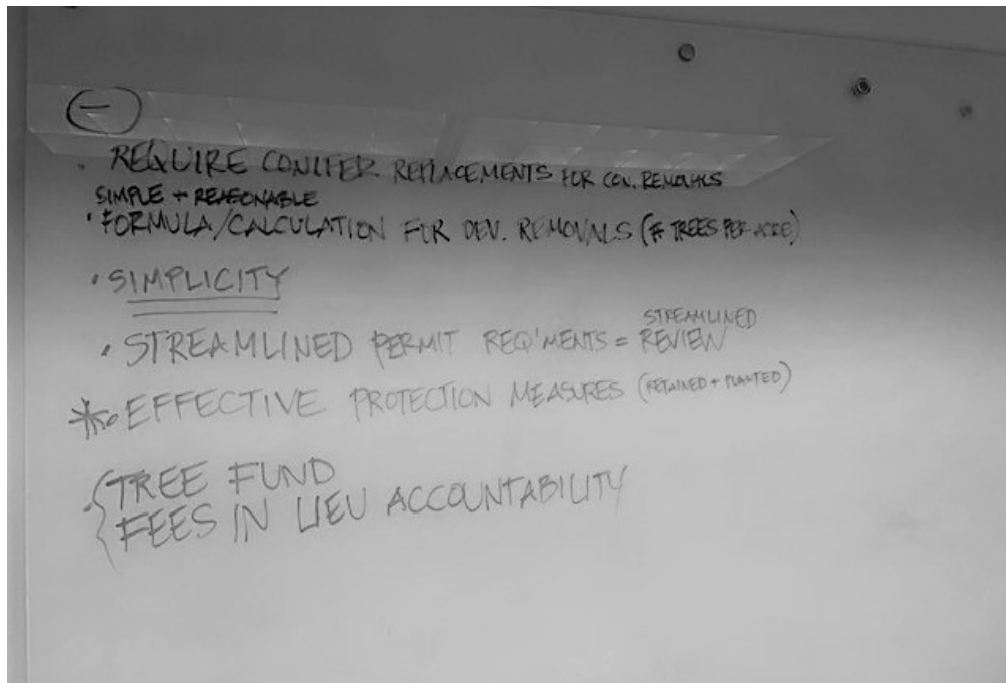 (−)
• REQUIRE CONIFER REPLACEMENTS FOR CON. REMOVALS
SIMPLE + REASONABLE
• FORMULA/CALCULATION FOR DEV. REMOVALS (# TREES PER ACRE)
• SIMPLICITY
STREAMLINED
• STREAMLINED PERMIT REQ'MENTS = REVIEW
* • EFFECTIVE PROTECTION MEASURES (RETAINED + PLANTED)
• { TREE FUND
FEES IN LIEU ACCOUNTABILITY